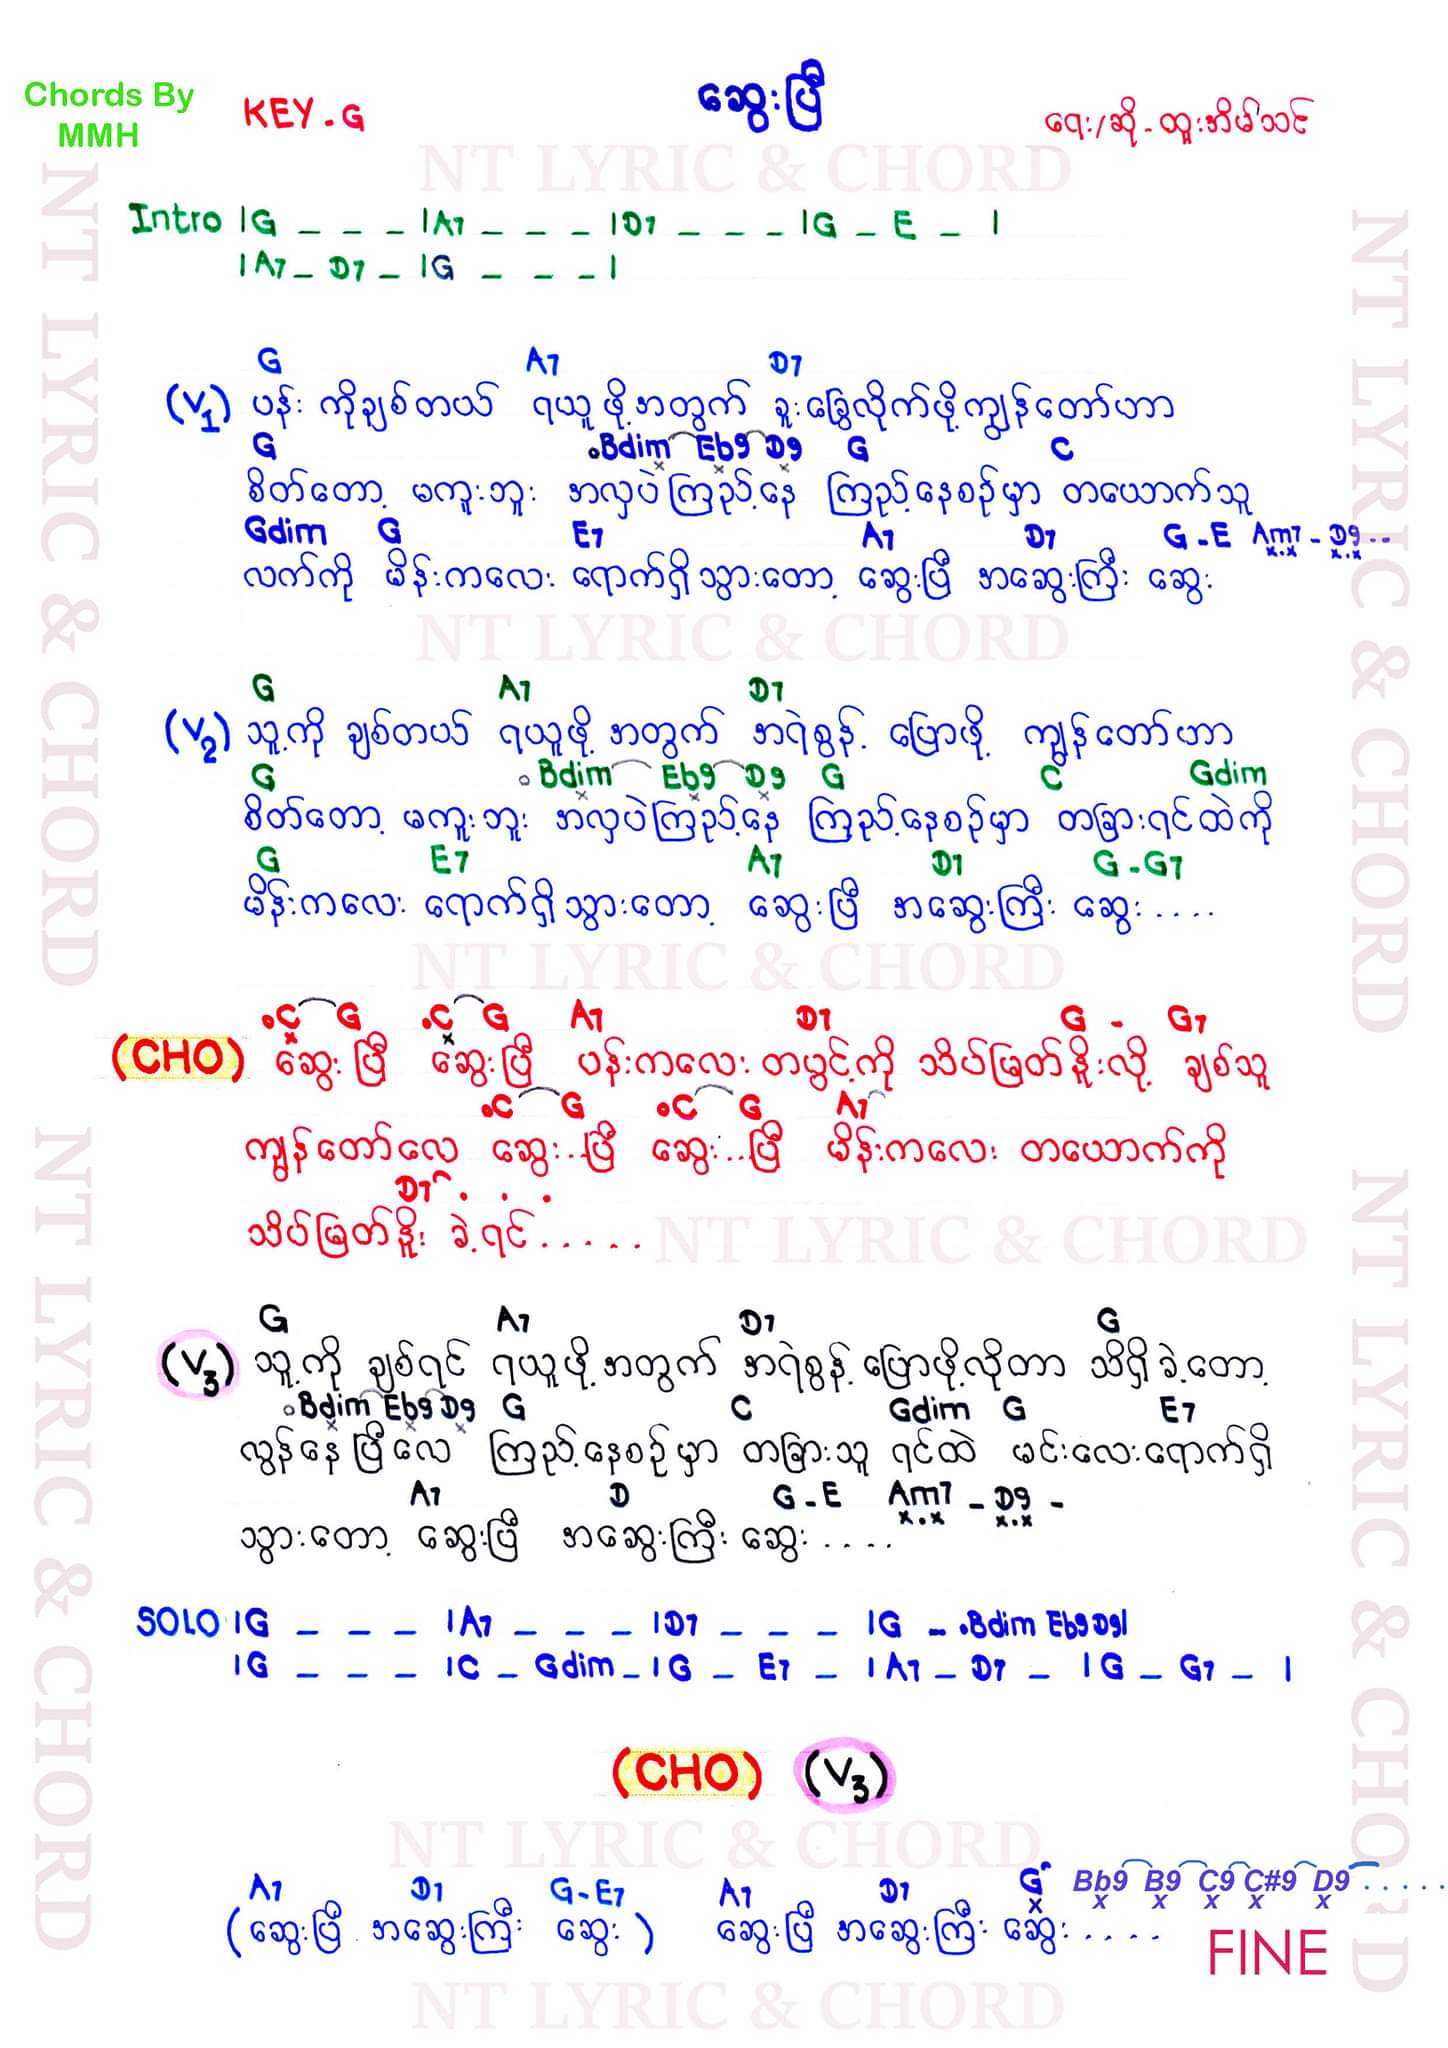 Chords By
MMH
KEY - G
ဆွေးပြီ
ရေး/ဆို - ထူးအိမ်သင်
NT LYRIC & CHORD
Intro |G _ _ _ |A7 _ _ _ |D7 _ _ _ |G _ E _ |
|A7 _ D7 _ |G _ _ _ |
G A7 D7
(V1) ပန်း ကိုချစ်တယ် ရယူ ဖို့အတွက် ခူးခြွေလိုက်ဖို့ကျွန်တော်ဟာ
G .Bdim Eb9 D9 G C
စိတ်တော့ မကူးဘူး အလှပဲကြည့်နေ ကြည့်နေစဉ်မှာ တယောက်သူ
Gdim G E7 A7 D7 G - E Am7 - D9 - -
လက်ကို မိန်းကလေး ရောက်ရှိသွားတော့ ဆွေးပြီ အဆွေးကြီး ဆွေး
NT LYRIC & CHORD
G A7 D7
(V2) သူ့ကို ချစ်တယ် ရယူဖို့ အတွက် အရဲစွန့် ပြောဖို့ ကျွန်တော်ဟာ
G Bdim Eb9 D9 G C Gdim
စိတ်တော့ မကူးဘူး အလှပဲကြည့်နေ ကြည့်နေစဉ်မှာ တခြားရင်ထဲကို
G E7 A7 D7 G - G7
မိန်းကလေး ရောက်ရှိသွားတော့ ဆွေးပြီ အဆွေးကြီး ဆွေး....
NT LYRIC & CHORD
.C G .C G A7 D7 G - G7
(CHO) ဆွေးပြီ ဆွေးပြီ ပန်းကလေး တပွင့်ကို သိပ်မြတ်နိုးလို့ ချစ်သူ
.C G .C G A7
ကျွန်တော်လေ ဆွေး..ပြီ ဆွေး..ပြီ မိန်းကလေး တယောက်ကို
D7 . . .
သိပ်မြတ်နိုး ခဲ့ရင်.....
NT LYRIC & CHORD
G A7 D7 G
(V3) သူ့ကို ချစ်ရင် ရယူဖို့အတွက် အရဲစွန့် ပြောဖို့လိုတာ သိရှိခဲ့တော့
Bdim Eb9 D9 G C Gdim G E7
လွန်နေပြီလေ ကြည့်နေစဉ်မှာ တခြားသူ ရင်ထဲ မင်းလေးရောက်ရှိ
A7 D G - E Am7 - D9 -
သွားတော့ ဆွေးပြီ အဆွေးကြီး ဆွေး....
SOLO |G _ _ _ |A7 _ _ _ |D7 _ _ _ |G _ .Bdim Eb9 D9|
|G _ _ _ |C _ Gdim _ |G _ E7 _ |A7 _ D7 _ |G _ G7 _ |
(CHO) (V3)
NT LYRIC & CHORD
A7 D7 G - E7 A7 D7 G Bb9 B9 C9 C#9 D9.....
(ဆွေးပြီ အဆွေးကြီး ဆွေး) ဆွေးပြီ အဆွေးကြီး ဆွေး....
FINE
NT LYRIC & CHORD
NT LYRIC & CHORD
NT LYRIC & CHORD
NT LYRIC & CHORD
NT LYRIC & CHORD